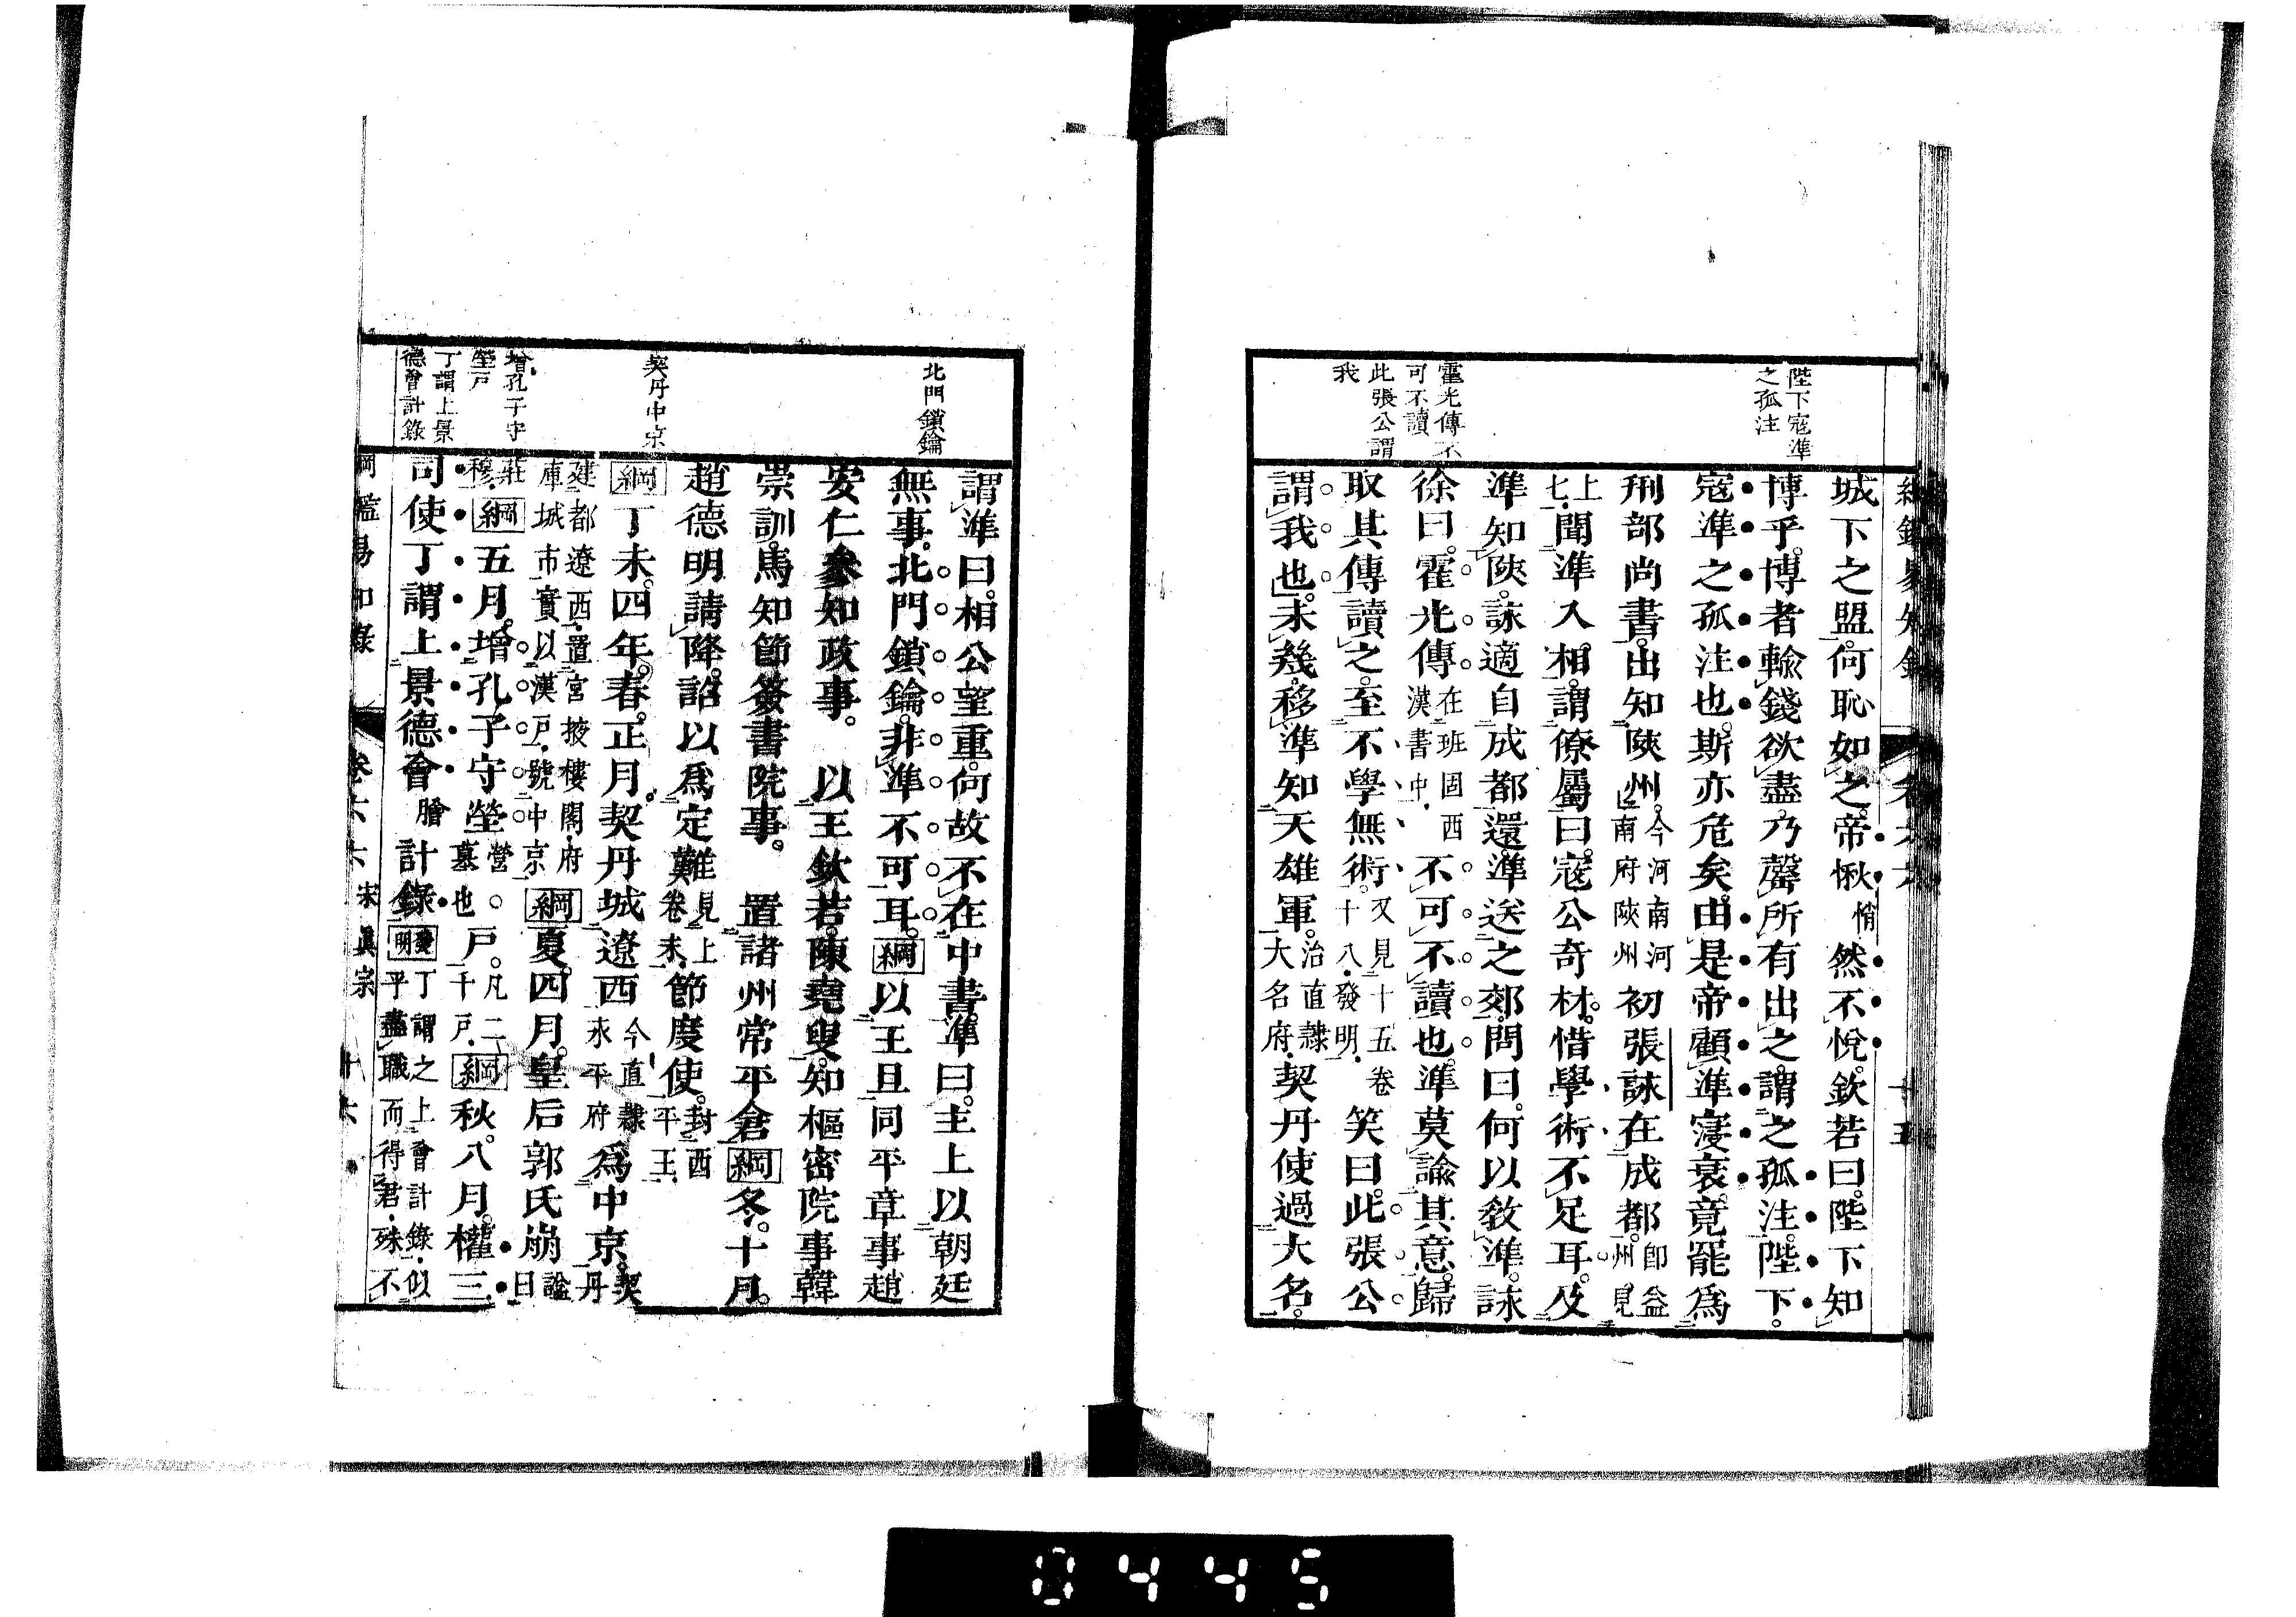 陛下寇準
之孤注
霍光傳不
可不讀
此張公謂
我
城下之盟何恥如之帝愀悄然不悅欽若曰陛下知
博乎博者輸錢欲盡乃罄所有出之謂之孤注陛下
寇準之孤注也斯亦危矣由是帝顧準寖衰竟罷爲
刑部尚書出知陝州今河南河南府陝州初張詠在成都卽益州見
上七聞準入相謂僚屬曰寇公奇材惜學術不足耳及
準知陝詠適自成都還準送之郊問曰何以敎準詠
徐曰霍光傳在班固西漢書中不可不讀也準莫諭其意歸
取其傳讀之至不學無術又見十五卷十八發明笑曰此張公
謂我也未幾移準知天雄軍治直隸大名府契丹使過大名
北門鎖鑰
契丹中京
增孔子守
塋戸
丁謂上景
德會計錄
謂準曰相公望重何故不在中書準曰主上以朝廷
無事北門鎖鑰非準不可耳綱以王旦同平章事趙
安仁參知政事 以王欽若陳堯叟知樞密院事韓
崇訓馬知節簽書院事 置諸州常平倉綱冬十月
趙德明請降詔以爲定難見上卷末節度使封西平王
綱丁未四年春正月契丹城遼西今直隸永平府爲中京契丹
建都遼西置宮掖樓閣府庫城市實以漢戸號中京綱夏四月皇后郭氏崩諡曰
莊穆綱五月增孔子守塋塋墓也戸凡二千戸綱秋八月權三
司使丁謂上景德會膾計錄發明丁謂之上會計錄似不
乎盡職而得君殊
綱鑑易知錄 卷六六 宋眞宗 十六